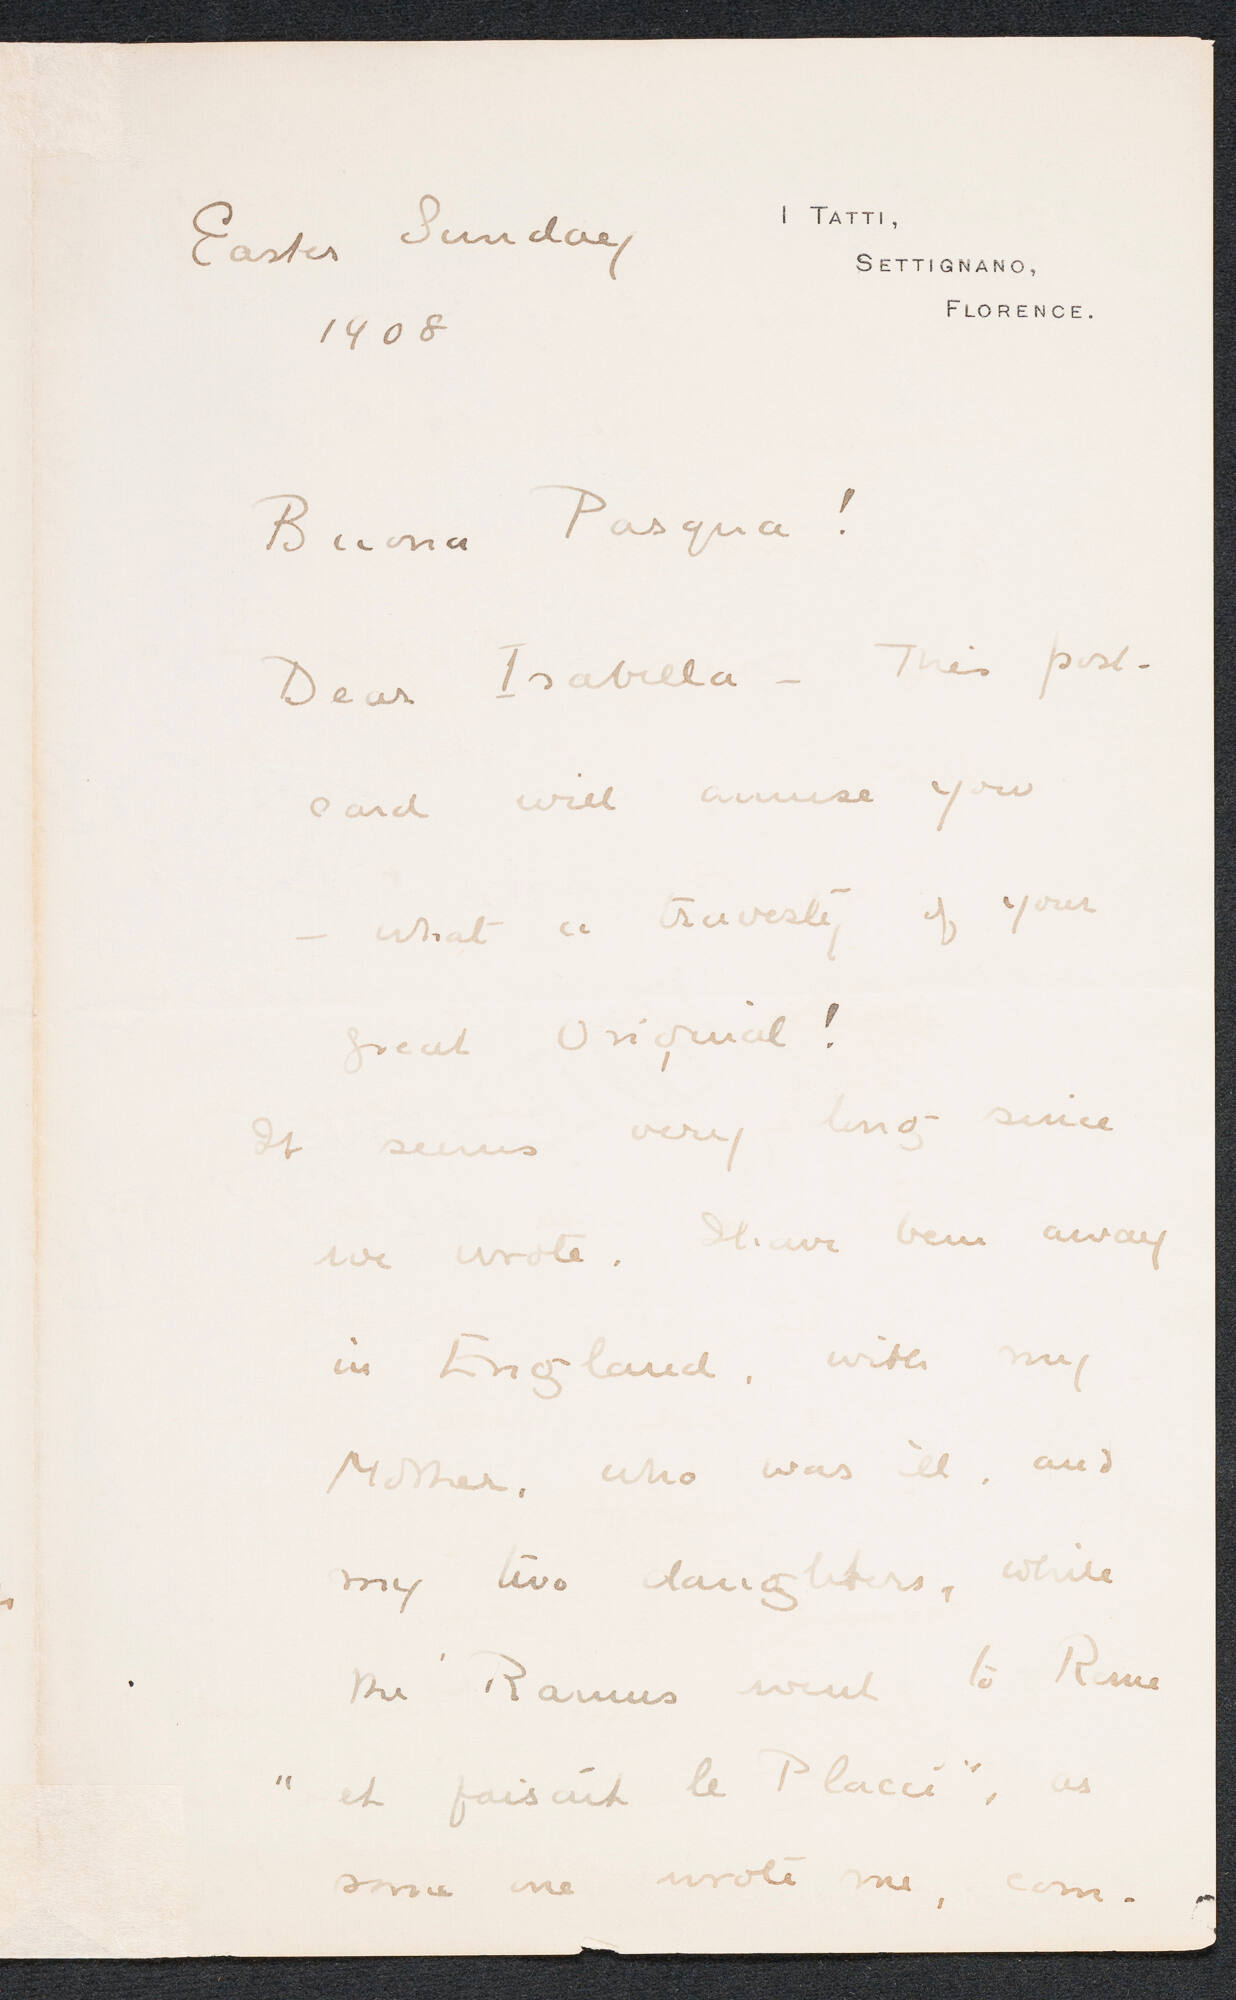 I TATTI,
SETTIGNANO,
FLORENCE.
Easter Sunday
1908
Buona Pasqua!
Dear Isabella – This post-
card will amuse you
– what a travesty of your
great Original!
It seems very long since
we wrote. I have been away
in England, with my
Mother, who was ill, and
my two daughters, while
the Ramus went to Rome
" et faisait le Placci", as
some one wrote me, com-